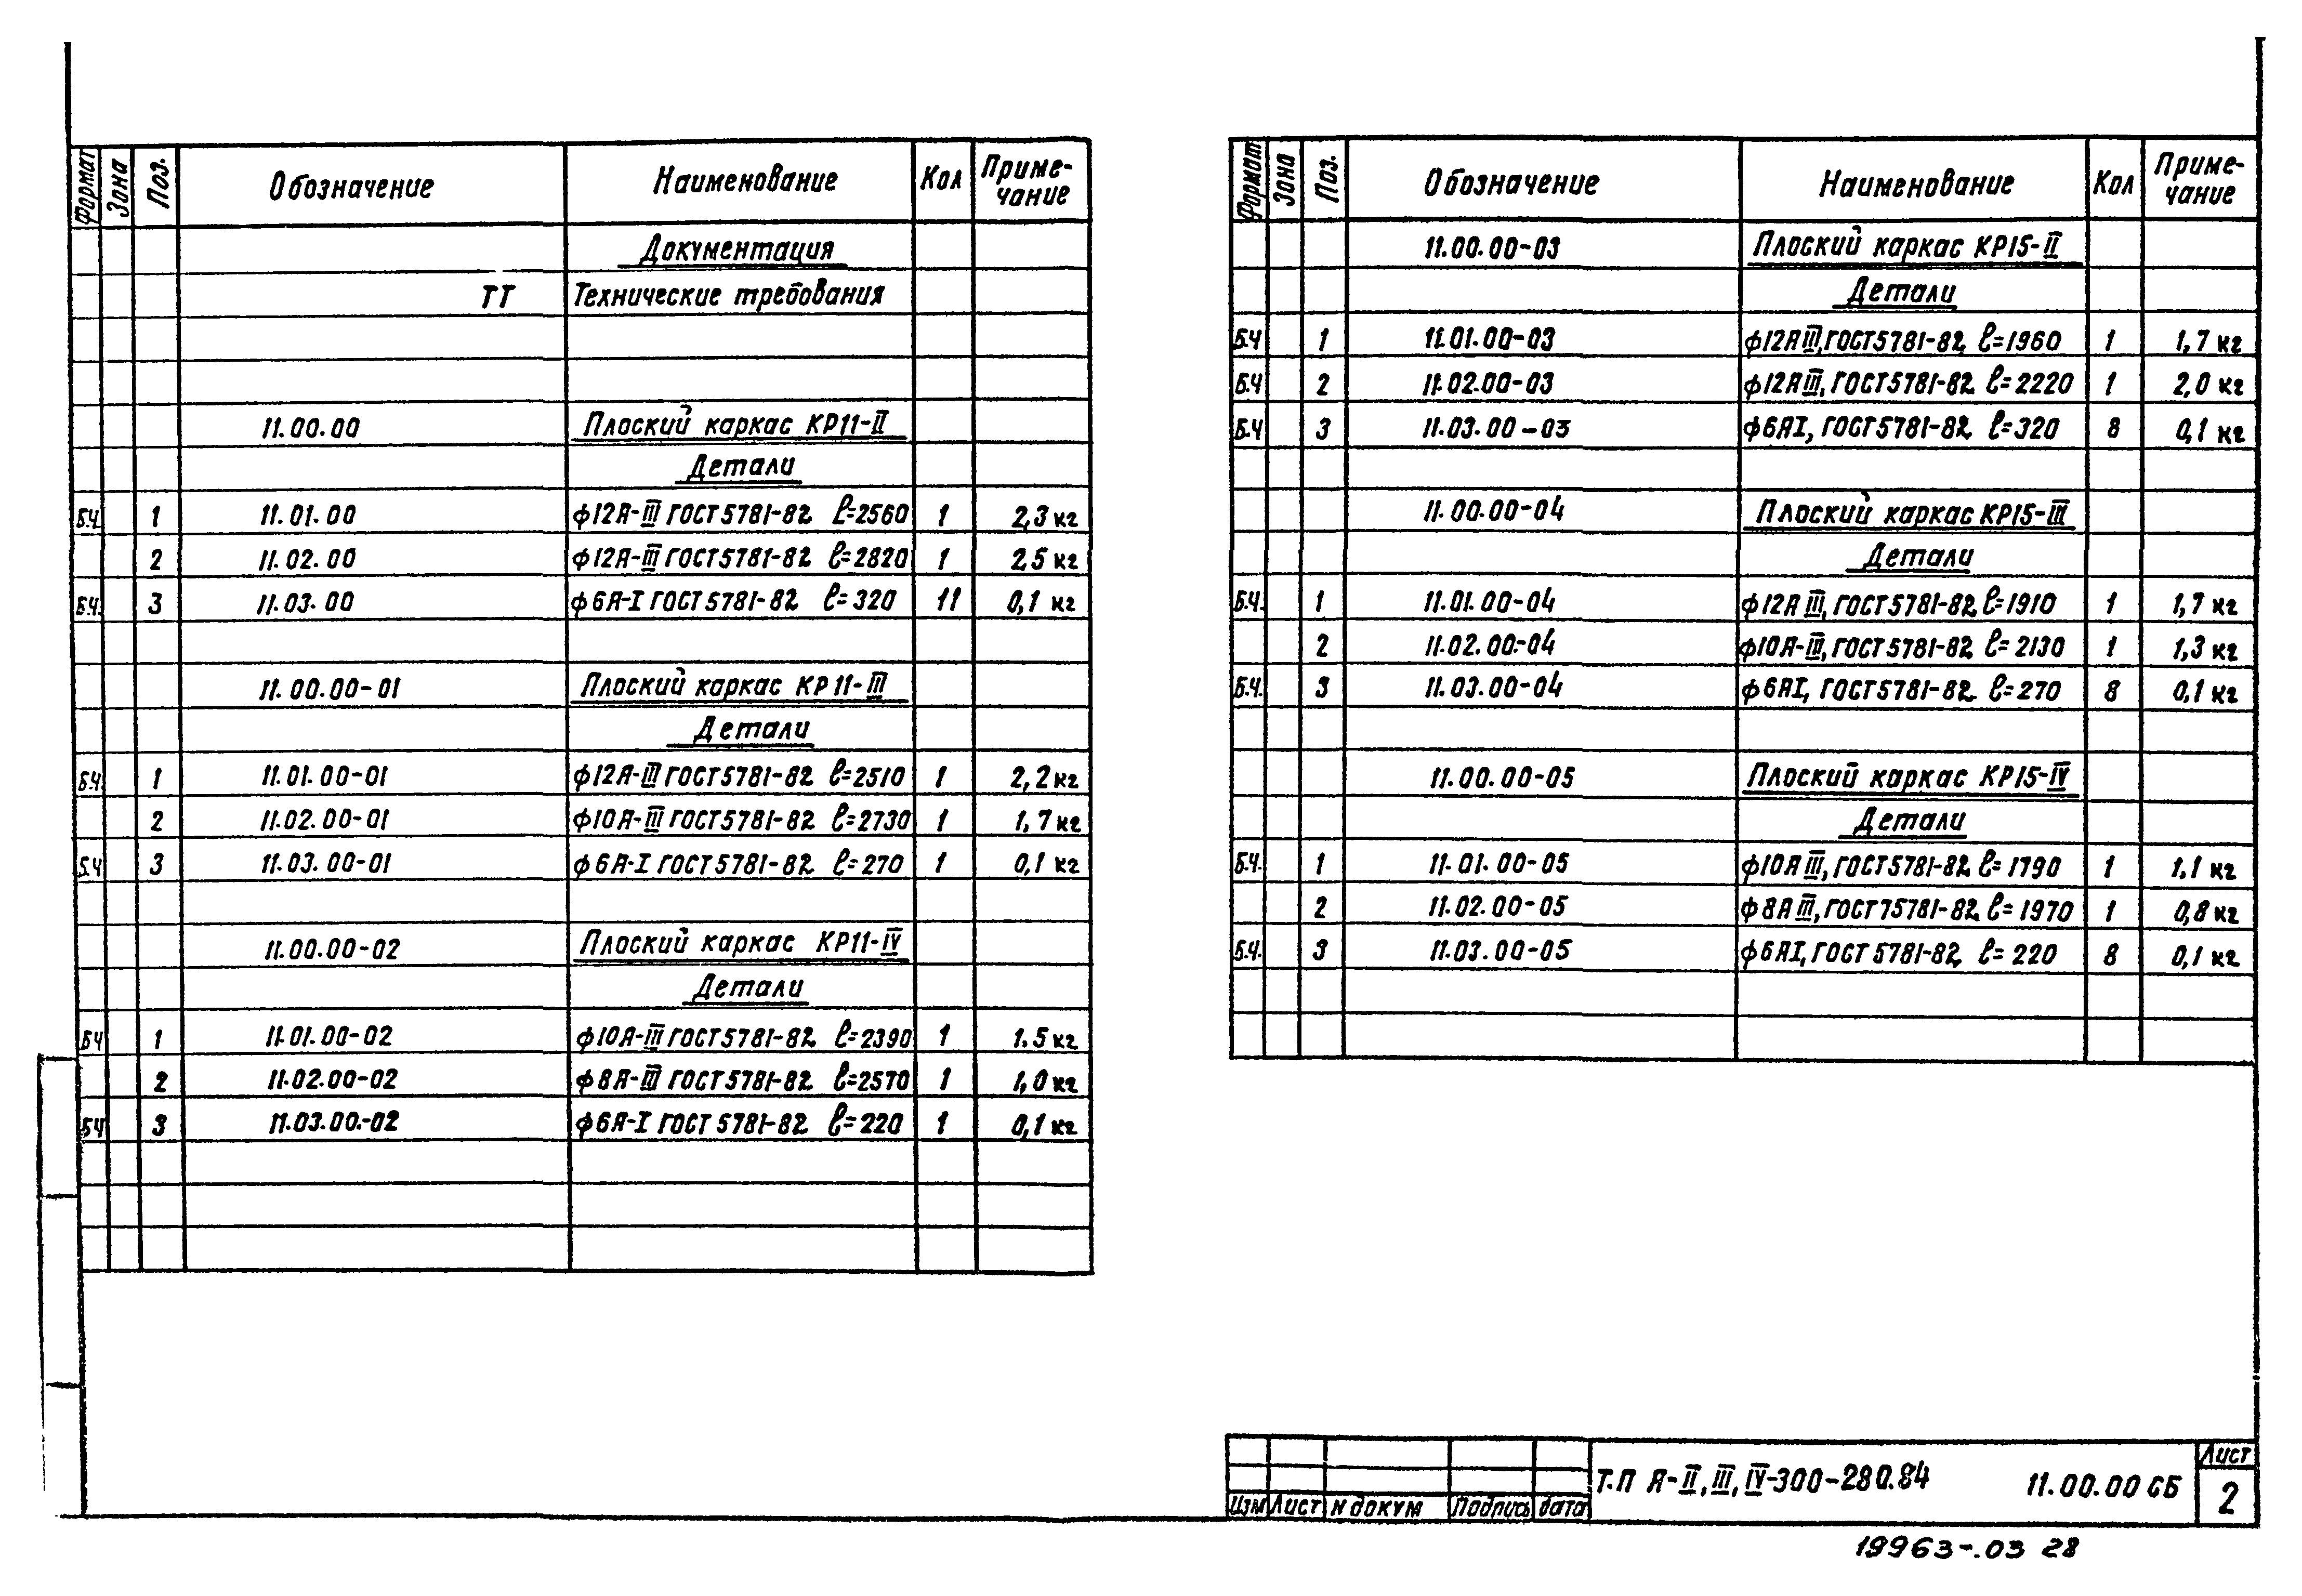 Формат Зона Поз. Обозначение Наименование Кол Приме-чание
Документация
ТТ Технические требования
11.00.00 Плоский каркас КР11-II
Детали
Б.Ч. 1 11.01.00 ф12А-III ГОСТ5781-82 ℓ=2560 1 2,3 кг
2 11.02.00 ф12А-III ГОСТ5781-82 ℓ=2820 1 2,5 кг
Б.Ч. 3 11.03.00 ф6А-I ГОСТ5781-82 ℓ=320 11 0,1 кг
11.00.00-01 Плоский каркас КР11-III
Детали
Б.Ч. 1 11.01.00-01 ф12А-III ГОСТ5781-82 ℓ=2510 1 2,2 кг
2 11.02.00-01 ф10А-III ГОСТ5781-82 ℓ=2730 1 1,7 кг
Б.Ч 3 11.03.00-01 ф6А-I ГОСТ5781-82 ℓ=270 1 0,1 кг
11.00.00-02 Плоский каркас КР11-IV
Детали
БЧ 1 11.01.00-02 ф10А-III ГОСТ5781-82 ℓ=2390 1 1.5 кг
2 11.02.00-02 ф8А-III ГОСТ5781-82 ℓ=2570 1 1,0 кг
БЧ 3 11.03.00.-02 ф6А-I ГОСТ5781-82 ℓ=220 1 0,1 кг
Формат Зона Поз. Обозначение Наименование Кол Приме-чание
11.00.00-03 Плоский каркас КР15-II
Детали
Б.Ч 1 11.01.00-03 ф12АIII, ГОСТ5781-82, ℓ=1960 1 1,7 кг
Б.Ч 2 11.02.00-03 ф12АIII, ГОСТ5781-82 ℓ=2220 1 2,0 кг
Б.Ч 3 11.03.00-03 ф6АI, ГОСТ5781-82 ℓ=320 8 0,1 кг
11.00.00-04 Плоский каркас КР15-III
Детали
Б.Ч. 1 11.01.00-04 ф12АIII, ГОСТ5781-82 ℓ=1910 1 1,7 кг
2 11.02.00.-04 ф10А-III, ГОСТ5781-82 ℓ=2130 1 1,3 кг
Б.Ч. 3 11.03.00-04 ф6АI, ГОСТ5781-82 ℓ=270 8 0,1 кг
11.00.00-05 Плоский каркас КР15-IV
Детали
Б.Ч. 1 11.01.00-05 ф10АIII, ГОСТ5781-82, ℓ=1790 1 1,1 кг
2 11.02.00-05 ф8АIII, ГОСТ75781-82, ℓ=1970 1 0,8 кг
Б.Ч. 3 11.03.00-05 ф6АI, ГОСТ5781-82, ℓ=220 8 0,1 кг
Изм Лист N докум Подпись дата
Т.П А-II, III, IV-300-280.84 11.00.00 СБ
Лист
2
19963-.03 28